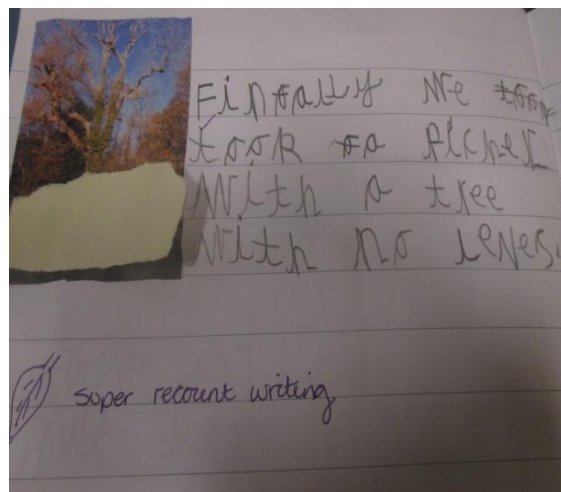 Finoally we took
took oa Picher
With a tree
With no leves.
super recount writing